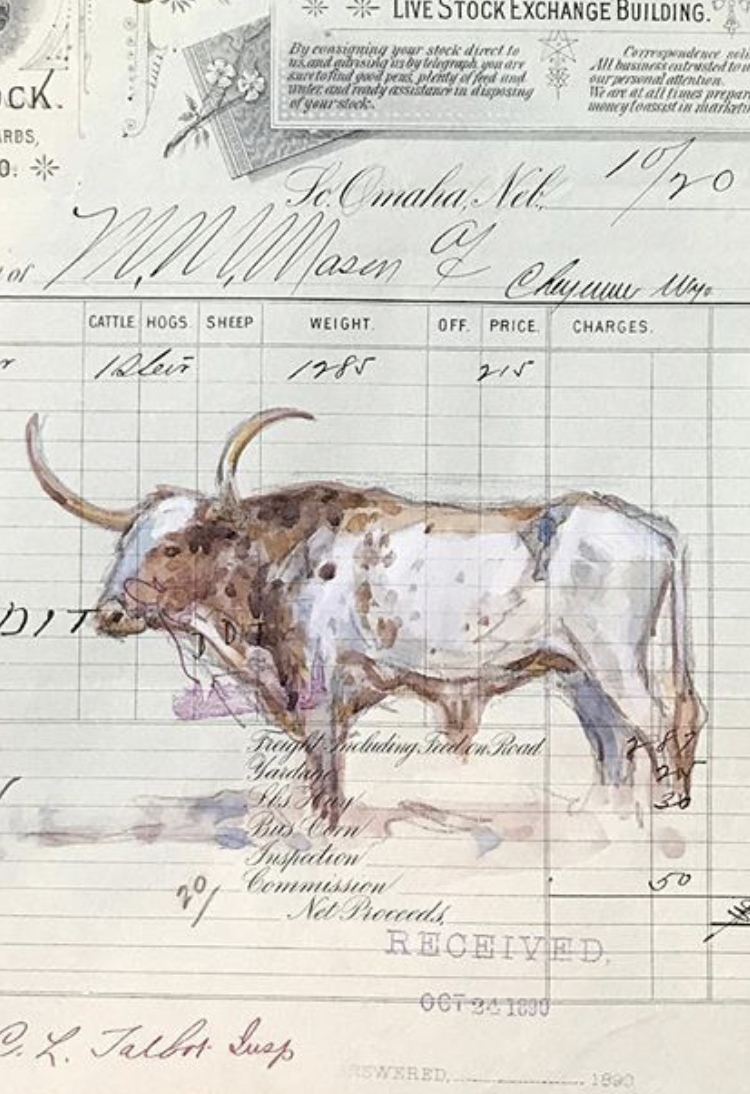 LIVE STOCK EXCHANGE BUILDING.
OCK.
ARBS,
O.
By consigning your stock direct to
us, and advising us by telegraph, you are
sure to find good pens, plenty of feed and
water, and ready assistance in disposing
of your stock.
Correspondence
All business entrusted to
our personal attention.
We are at all times
money to assist in
So. Omaha, Neb. 10/20
of M. Mason of Cheyenne Wyo.
CATTLE HOGS. SHEEP WEIGHT. OFF. PRICE. CHARGES.
1 Steer 1285 215
DIT
Freight Including Feed on Road
Yardage
Lbs Hay 30
Bus Corn
Inspection
Commission 50
20/
Net Proceeds,
RECEIVED.
OCT 24 1890
C. L. Talbot Insp
SWERED, 1890